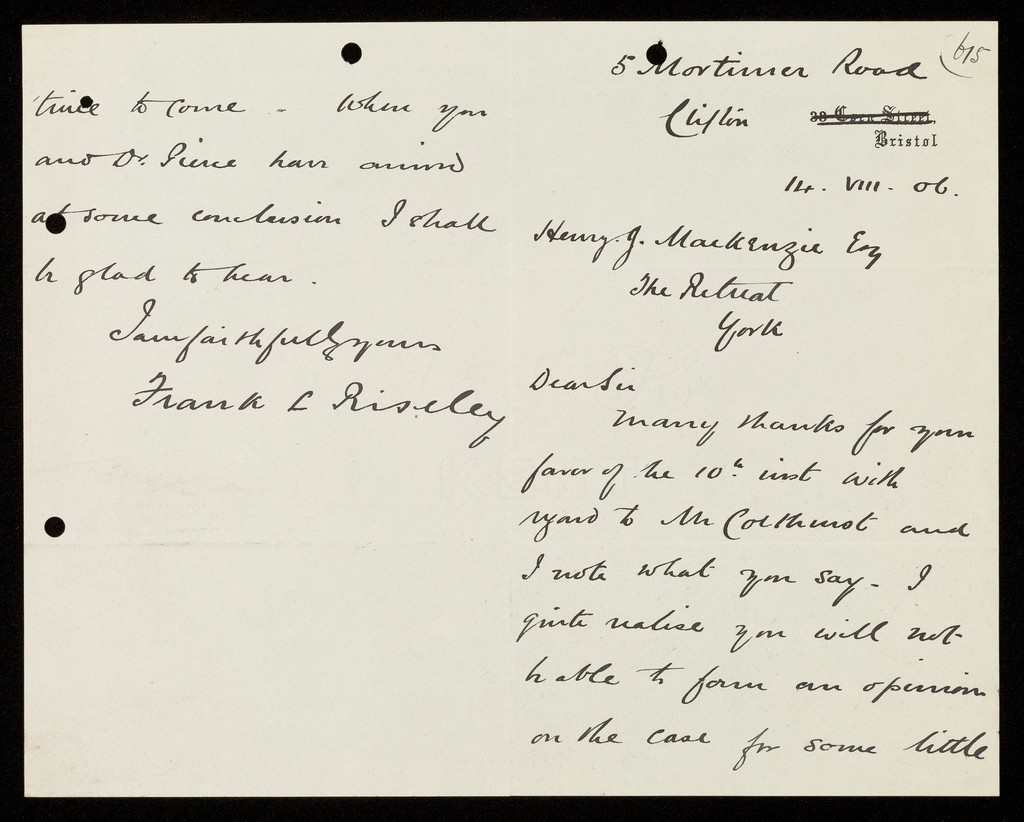 615
5 Mortimer Road
Clifton
Bristol
14. VIII. 06.
Henry. J. Mackenzie Esq
The Retreat
York
Dear Sir
Many thanks for your
favor of the 10th inst with
regard to Mr Colthurst and
I note what you say - I
quite realise you will not
be able to form an opinion
on the case for some little
time to come - When you
and Dr. Pierce have arrived
at some conclusion I shall
be glad to hear.
I am faithfully yours
Frank L Riseley